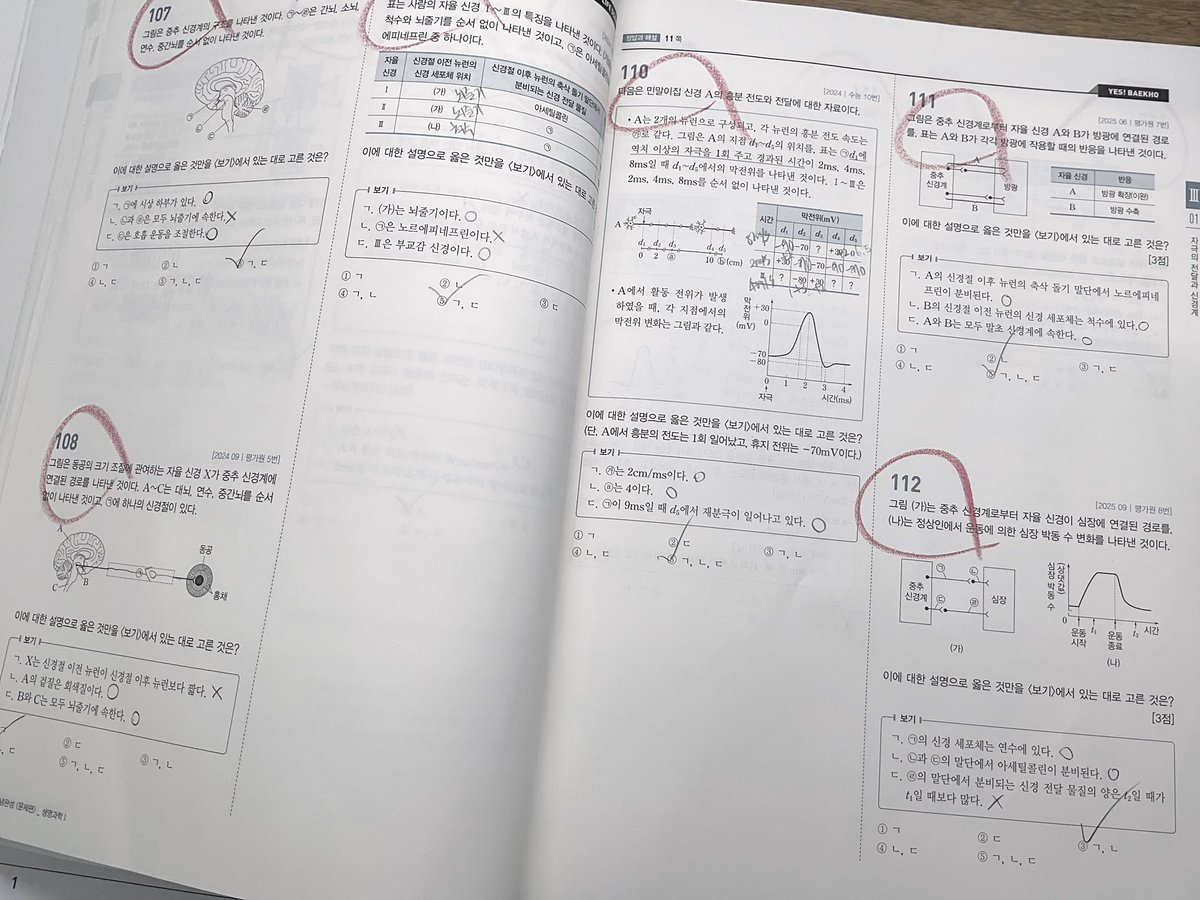 107
그림은 중추 신경계의 구조를 나타낸 것이다. ㉠~㉣은 간뇌, 소뇌,
연수, 중간뇌를 순서 없이 나타낸 것이다.
이에 대한 설명으로 옳은 것만을 <보기>에서 있는 대로 고른 것은?
보기
ㄱ. ㉠에 시상 하부가 있다.
ㄴ. ㉡과 ㉣은 모두 뇌줄기에 속한다.
ㄷ. ㉢은 호흡 운동을 조절한다.
① ㄱ
② ㄴ
③ ㄱ, ㄷ
④ ㄴ, ㄷ
⑤ ㄱ, ㄴ, ㄷ
108
[2024 09 | 평가원 5번]
그림은 동공의 크기 조절에 관여하는 자율 신경 X가 중추 신경계에
연결된 경로를 나타낸 것이다. A~C는 대뇌, 연수, 중간뇌를 순서
없이 나타낸 것이고, ㉠에 하나의 신경절이 있다.
A
B
C
㉠
동공
홍채
이에 대한 설명으로 옳은 것만을 <보기>에서 있는 대로 고른 것은?
보기
ㄱ. X는 신경절 이전 뉴런이 신경절 이후 뉴런보다 짧다.
ㄴ. A의 겉질은 회색질이다.
ㄷ. B와 C는 모두 뇌줄기에 속한다.
② ㄷ
③ ㄱ, ㄴ
⑤ ㄱ, ㄴ, ㄷ
(문제편)_생명과학 I
1
표는 사람의 자율 신경 Ⅰ~Ⅲ의 특징을 나타낸 것이다.
척수와 뇌줄기를 순서 없이 나타낸 것이고, ㉠은 아세틸
에피네프린 중 하나이다.
자율 신경
신경절 이전 뉴런의 신경 세포체 위치
신경절 이후 뉴런의 축삭 돌기 말단에서 분비되는 신경 전달 물질
Ⅰ (가) 뇌줄기 아세틸콜린
Ⅱ (가) 뇌줄기 ㉠
Ⅲ (나) 척수 ㉠
이에 대한 설명으로 옳은 것만을 <보기>에서 있는 대로 고른
보기
ㄱ. (가)는 뇌줄기이다.
ㄴ. ㉠은 노르에피네프린이다.
ㄷ. Ⅲ은 부교감 신경이다.
① ㄱ
② ㄴ
③ ㄷ
④ ㄱ, ㄴ
⑤ ㄱ, ㄷ
정답과 해설 11쪽
110
[2024 | 수능 10번]
다음은 민말이집 신경 A의 흥분 전도와 전달에 대한 자료이다.
• A는 2개의 뉴런으로 구성되고, 각 뉴런의 흥분 전도 속도는
㉮로 같다. 그림은 A의 지점 d₁~d₅의 위치를, 표는 ㉠d₁에
역치 이상의 자극을 1회 주고 경과된 시간이 2ms, 4ms,
8ms일 때 d₁~d₅에서의 막전위를 나타낸 것이다. Ⅰ~Ⅲ은
2ms, 4ms, 8ms를 순서 없이 나타낸 것이다.
자극
A
d₁ d₂ d₃ d₄ d₅
0 2 ⓐ 10 ⓑ (cm)
시간 막전위(mV)
d₁ d₂ d₃ d₄ d₅
• A에서 활동 전위가 발생
하였을 때, 각 지점에서의
막전위 변화는 그림과 같다.
막전위(mV)
+30
0
-70
-80
0 1 2 3 4
자극
시간(ms)
이에 대한 설명으로 옳은 것만을 <보기>에서 있는 대로 고른 것은?
(단, A에서 흥분의 전도는 1회 일어났고, 휴지 전위는 -70mV이다.)
보기
ㄱ. ㉮는 2cm/ms이다.
ㄴ. ⓐ는 4이다.
ㄷ. ㉠이 9ms일 때 d₅에서 재분극이 일어나고 있다.
① ㄱ
② ㄷ
③ ㄱ, ㄴ
④ ㄴ, ㄷ
⑤ ㄱ, ㄴ, ㄷ
YES! BAEKHO
111
[2025 06 | 평가원 7번]
그림은 중추 신경계로부터 자율 신경 A와 B가 방광에 연결된 경로
를, 표는 A와 B가 각각 방광에 작용할 때의 반응을 나타낸 것이다.
중추 신경계
A
B
방광
자율 신경 반응
A 방광 확장(이완)
B 방광 수축
이에 대한 설명으로 옳은 것만을 <보기>에서 있는 대로 고른 것은?
[3점]
보기
ㄱ. A의 신경절 이후 뉴런의 축삭 돌기 말단에서 노르에피네
프린이 분비된다.
ㄴ. B의 신경절 이전 뉴런의 신경 세포체는 척수에 있다.
ㄷ. A와 B는 모두 말초 신경계에 속한다.
① ㄱ
② ㄴ
③ ㄱ, ㄷ
④ ㄴ, ㄷ
⑤ ㄱ, ㄴ, ㄷ
112
[2025 09 | 평가원 8번]
그림 (가)는 중추 신경계로부터 자율 신경이 심장에 연결된 경로를,
(나)는 정상인에서 운동에 의한 심장 박동 수 변화를 나타낸 것이다.
중추 신경계
㉠
㉡
㉢
㉣
심장
(가)
심장 박동 수 (상댓값)
0
운동 시작
t₁
운동 종료
t₂
시간
(나)
이에 대한 설명으로 옳은 것만을 <보기>에서 있는 대로 고른 것은?
[3점]
보기
ㄱ. ㉠의 신경 세포체는 연수에 있다.
ㄴ. ㉡과 ㉢의 말단에서 아세틸콜린이 분비된다.
ㄷ. ㉣의 말단에서 분비되는 신경 전달 물질의 양은 t₂일 때가
t₁일 때보다 많다.
① ㄱ
② ㄷ
③ ㄱ, ㄴ
④ ㄴ, ㄷ
⑤ ㄱ, ㄴ, ㄷ
Ⅲ
01
자극의 전달과 신경계